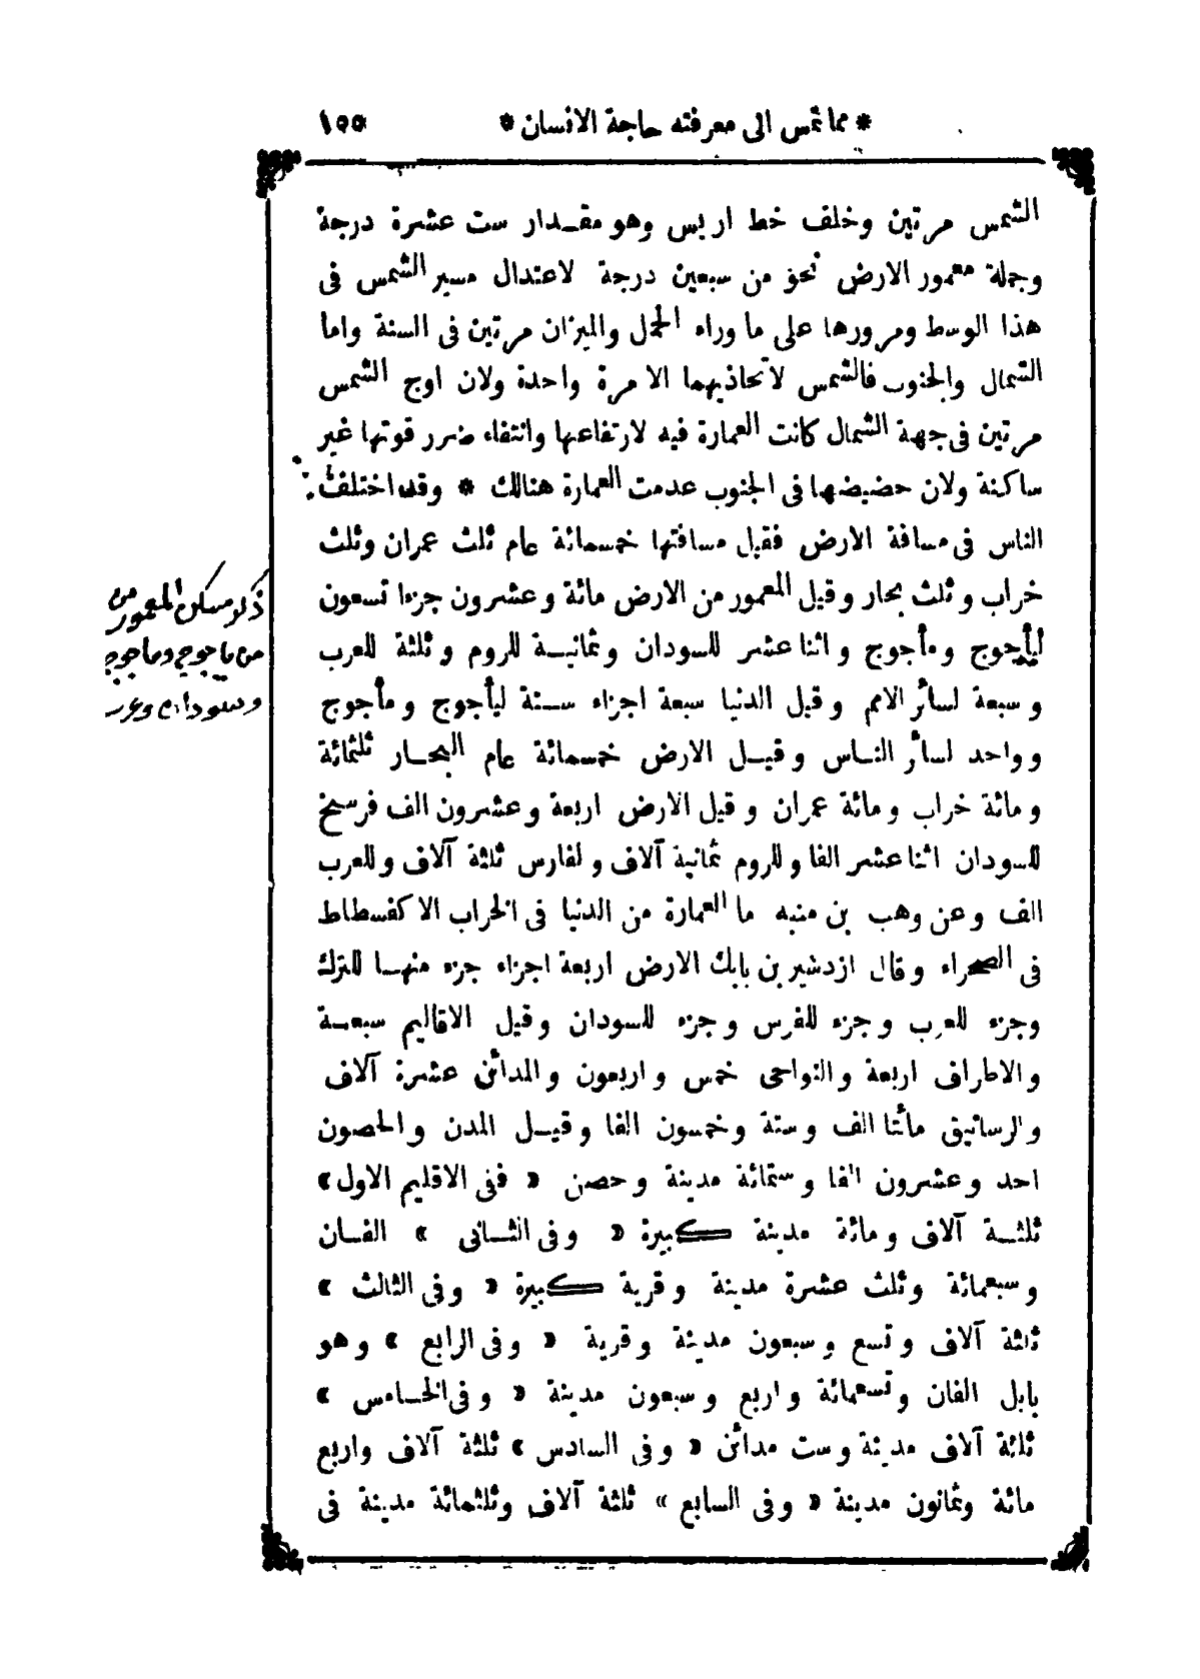 * مما تمس الى معرفته حاجة الانسان * ١٥٥
الشمس مرتين وخلف خط اريس وهو مقدار ست عشرة درجة
وجملة معمور الارض نحو من سبعين درجة لاعتدال مسير الشمس فى
هذا الوسط ومرورها على ما وراء الحمل والميزان مرتين فى السنة واما
الشمال والجنوب فالشمس لا تحاذيهما الا مرة واحدة ولان اوج الشمس
مرتين فى جهة الشمال كانت العمارة فيه لارتفاعها وانتفاء ضرر قوتها غير
ساكنة ولان حضيضها فى الجنوب عدمت العمارة هنالك * وقد اختلفت
الناس فى مسافة الارض فقيل مسافتها خمسمائة عام ثلث عمران وثلث
خراب وثلث بحار وقيل المعمور من الارض مائة وعشرون جزءا تسعون
ليأجوج ومأجوج واثنا عشر للسودان وثمانيـة للروم وثلثة للعرب
وسبعة لسائر الامم وقيل الدنيا سبعة اجزاء ستـة ليأجوج ومأجوج
وواحد لسائر النـاس وقيـل الارض خمسمائة عام البحـار ثلثمائة
ومائة خراب ومائة عمران وقيل الارض اربعة وعشرون الف فرسخ
للسودان اثنا عشر الفا وللروم ثمانية آلاف ولفارس ثلثة آلاف وللعرب
الف وعن وهب بن منبه ما العمارة من الدنيا فى الخراب الا كفسطاط
فى الصحراء وقال ازدشير بن بابك الارض اربعة اجزاء جزء منهـا للترك
وجزء للعرب وجزء للفرس وجزء للسودان وقيل الاقاليم سبعـة
والاطراف اربعة والنواحى خمس واربعون والمدائن عشرة آلاف
والرساتيق مائتا الف وستة وخمسون الفا وقيـل المدن والحصون
احد وعشرون الفا وستمائة مدينة وحصن « ففى الاقليم الاول »
ثلثـة آلاف ومائة مدينة كبيرة « وفى الثـانى » الفـان
وسبعمائة وثلث عشرة مدينة وقرية كبيرة « وفى الثالث »
ثلثة آلاف وتسع وسبعون مدينة وقرية « وفى الرابع » وهو
بابل الفان وتسعمائة واربع وسبعون مدينة « وفى الخـامس »
ثلثة آلاف مدينة وست مدائن « وفى السادس » ثلثة آلاف واربع
مائة وثمانون مدينة « وفى السابع » ثلثة آلاف وثلثمائة مدينة فى
ذكر مسكن المعمور من
من ياجوج وماجوج
وسودان وعرب